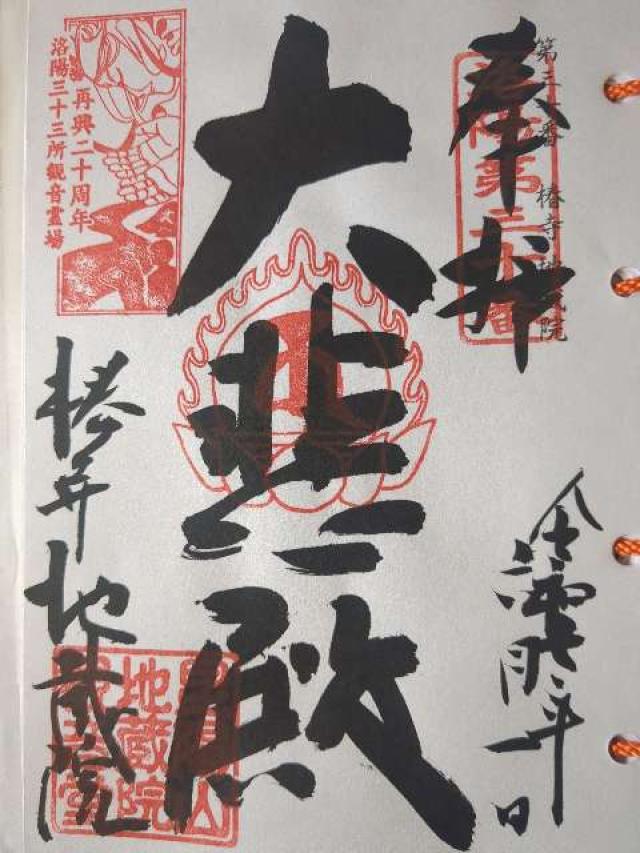 第三十番 椿寺 地蔵院
奉拝
洛陽第三十番
大悲殿
再興二十周年
洛陽三十三所観音霊場
椿寺
地蔵院
地蔵院